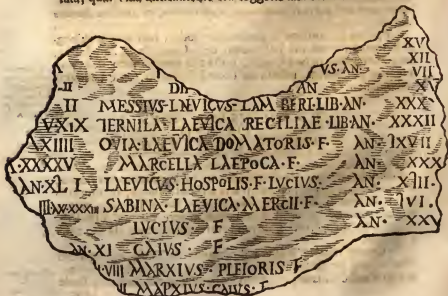 XV
XII
VS·AN· VII
II DII AN XV
II MESSIVS·LAEVICVS·LAMBERI·LIB·AN· XXX
V·XIX TERNILA·LAEVICA·RECILIAE·LIB·AN· XXXII
XVIIII OVIA·LAEVICA·DOMATORIS·F· AN·
I·XXXXV MARCELLA·LAEPOCA·F· AN· XXXX
AN·XLI LAEVICVS·HOSPOLIS·F·LVCIVS· AN·
SABINA·LAEVICA·MERCII·F· AN·
LVCIVS F AN· XXV
AN·XI GAIVS·F·
VIII MARXIVS·PLEIORIS·F
II MAPXIVS·CAIVS·F